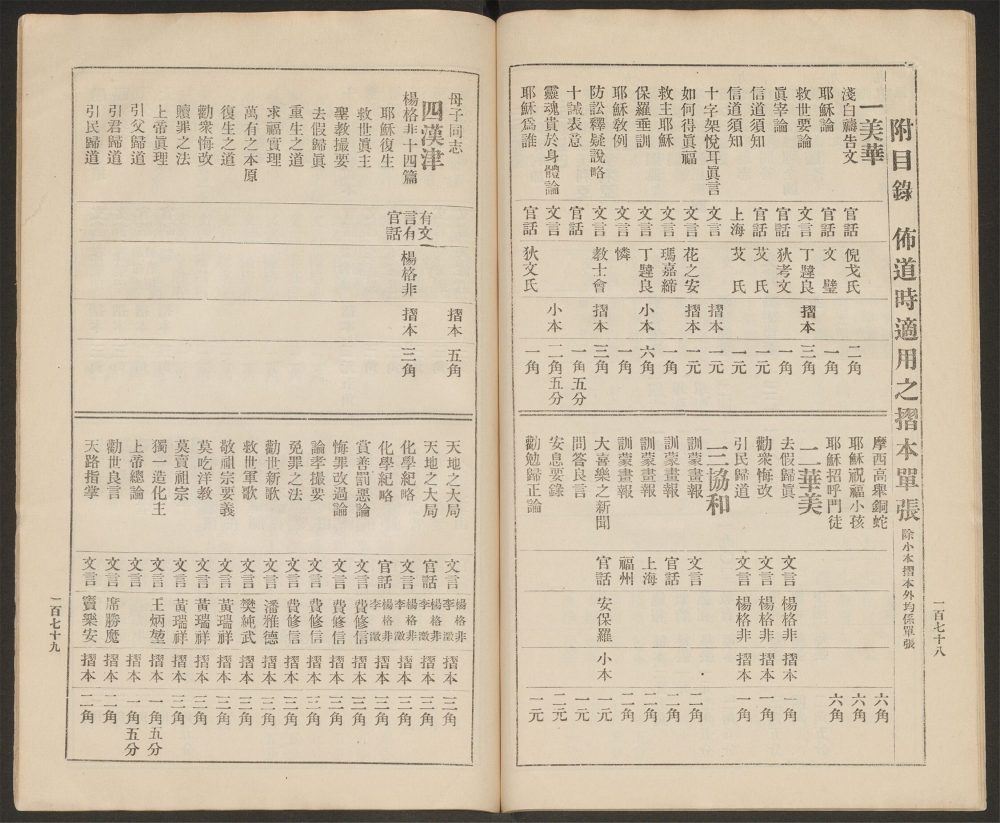 附目錄 佈道時適用之摺本單張 除小本摺本外均係單張
一美華
淺白禱告文 官話 倪戈氏 二角
耶穌論 官話 文璧 一角
救世要論 文言 丁韙良 摺本 三角
眞宰論 官話 狄考文 一角
信道須知 官話 艾氏 一元
信道須知 上海 艾氏 一元
十字架悅耳眞言 文言 摺本 一元
如何得眞福 文言 花之安 摺本 一元
救主耶穌 文言 瑪嘉締 一角
保羅垂訓 文言 丁韙良 小本 六角
耶穌敎例 文言 憐 一角
防訟釋疑說略 文言 教士會 摺本 三角
十誡表意 官話 一角五分
靈魂貴於身體論 文言 小本 二角五分
耶穌爲誰 官話 狄文氏 一角
摩西高舉銅蛇 六角
耶穌祝福小孩 六角
耶穌招呼門徒 六角
二華美
去假歸眞 文言 楊格非 摺本 一角
勸衆悔改 文言 楊格非 摺本 一角
引民歸道 文言 楊格非 摺本 一角
三協和
訓蒙畫報 文言 二角
訓蒙畫報 官話 二角
訓蒙畫報 上海 二角
訓蒙畫報 福州 二角
大喜樂之新聞 官話 安保羅 小本 一元
問答良言 一元
安息要錄 二元
勸勉歸正論 一元
一百七十八
母子同志 摺本 五角
四漢津
楊格非十四篇 有文言有官話 楊格非 摺本 三角
耶穌復生
救世眞主
聖教撮要
去假歸眞
重生之道
求福實理
萬有之本原
復生之道
勸衆悔改
贖罪之法
上帝眞理
引父歸道
引君歸道
引民歸道
天地之大局 文言 楊格非 李澂 摺本 三角
天地之大局 官話 楊格非 李澂 摺本 三角
化學紀略 文言 楊格非 李澂 摺本 三角
化學紀略 官話 楊格非 李澂 摺本 三角
賞善罰惡論 文言 費修信 摺本 三角
悔罪改過論 文言 費修信 摺本 三角
論孝撮要 文言 費修信 摺本 三角
免罪之法 文言 費修信 摺本 三角
勸世新歌 文言 潘雅德 摺本 三角
救世軍歌 文言 樊純武 摺本 三角
敬祖宗要義 文言 黃瑞祥 摺本 三角
莫吃洋教 文言 黃瑞祥 摺本 三角
莫賣祖宗 文言 黃瑞祥 摺本 三角
獨一造化主 文言 王炳堃 摺本 一角五分
上帝總論 文言 摺本 一角五分
勸世良言 文言 席勝魔 摺本 二角
天路指掌 文言 竇樂安 摺本 二角
一百七十九